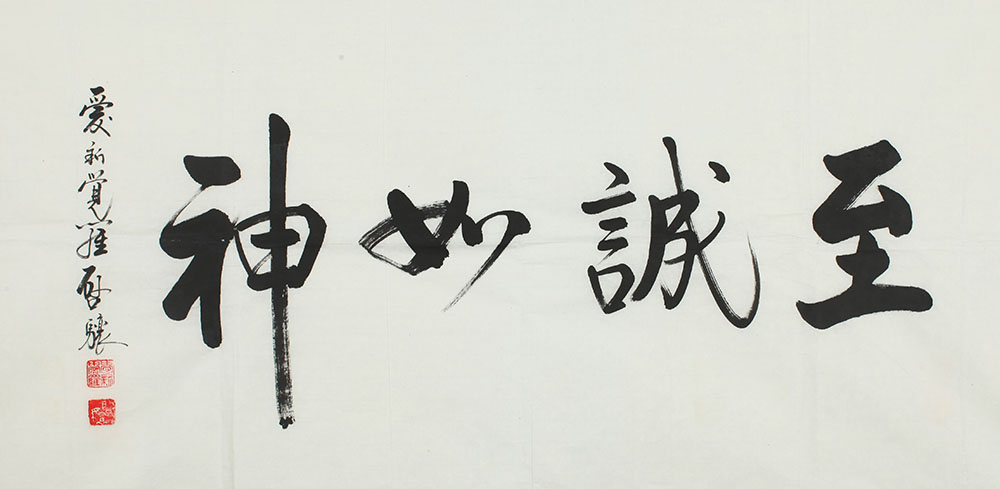 至誠如神
愛新覺羅啟驤